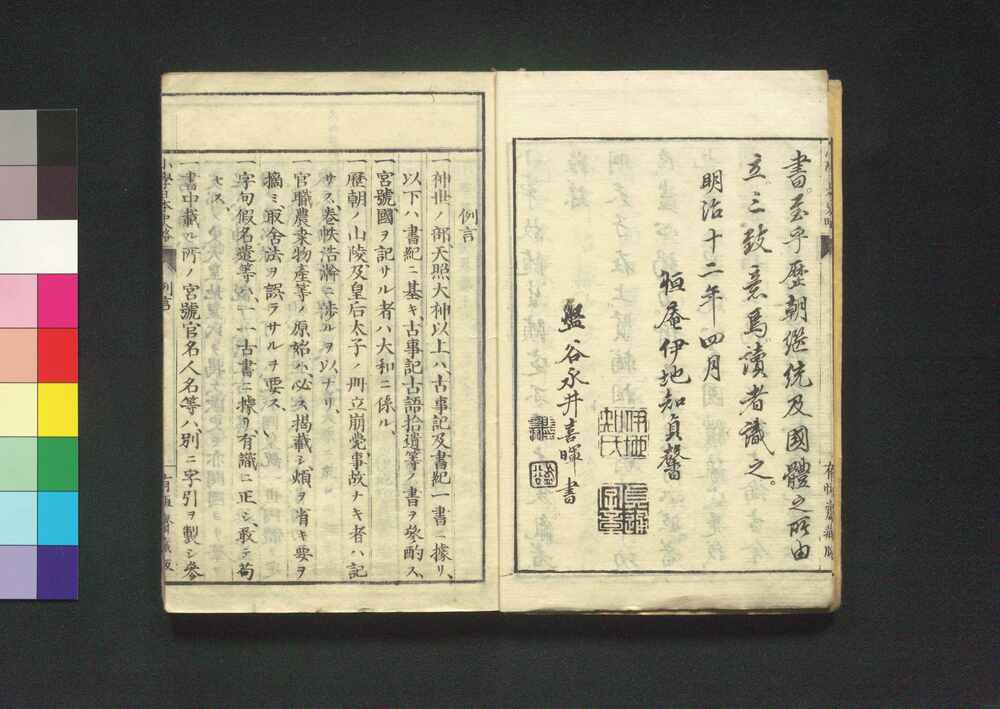 書。至乎歷朝繼統及國體之所由
立。三致意焉。讀者識之。
明治十二年四月
恒庵伊地知貞馨
盤谷永井喜暉書
例言
一神世ノ部、天照大神以上ハ、古事記及書紀一書ニ據リ、
以下ハ書紀ニ基キ、古事記古語拾遺等ノ書ヲ參酌ス、
一宮號、國ヲ記サル者ハ大和ニ係ル、
一歷朝ノ山陵及皇后太子ノ冊立崩薨、事故ナキ者ハ記
サス、卷帙浩瀚ニ涉ルヲ以ナリ、
一官職農桑物産等ノ原始ハ、必ス揭載シ、煩ヲ省キ要ヲ
摘ミ、取舍法ヲ誤ラサルヲ要ス、
一字句假名遣等ハ、一一古書ニ據リ、有識ニ正シ、敢テ苟
セス、
一書中載ル所ノ宮號官名人名等ハ、別ニ字引ヲ製シ參
小學日本史略
例言